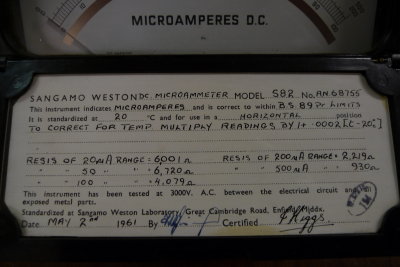 MICROAMPERES D.C.
SANGAMO WESTON D.C. MICROAMMETER MODEL S82 No. AM.68755
This instrument indicates MICROAMPERES and is correct to within B.S. 89 Pr LIMITS
It is standardized at 20 °C and for use in a HORIZONTAL position
TO CORRECT FOR TEMP MULTIPLY READINGS BY 1+ .0002[C-20°]
RESIS OF 20µA RANGE = 6001Ω RESIS OF 200µA RANGE = 2,219Ω
" " 50 " " 6,720Ω " " 500µA " " 930Ω
" " 100 " " 4,079Ω
This instrument has been tested at 3000V. A.C. between the electrical circuit and
exposed metal parts.
Standardized at Sangamo Weston Laboratory, Great Cambridge Road, Enfield, Middx.
Date MAY 2nd 1961 By Certified